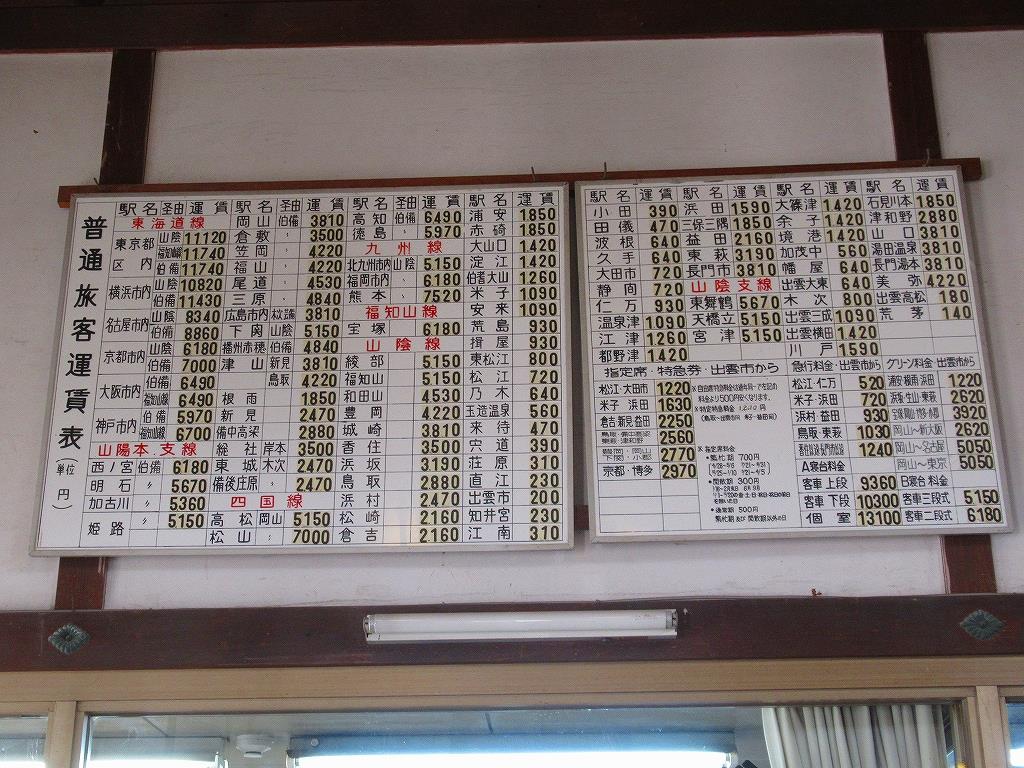 普通旅客運賃表
(単位 円)
駅名 圣由 運賃
東海道線
東京都区内 山陰 11120
福知山線 11740
伯備 11740
横浜市内 山陰 10820
伯備 11430
名古屋市内 山陰 8340
伯備 8860
京都市内 山陰 6180
伯備 7000
大阪市内 伯備 6490
福知山線 6490
神戸市内 伯備 5970
福知山線 6700
山陽本、支線
西ノ宮 伯備 6180
明石 〃 5670
加古川 5360
姫路 〃 5150
駅名 圣由 運賃
岡山 伯備 3810
倉敷 〃 3500
笠岡 〃 4220
福山 〃 4220
尾道 〃 4530
三原 〃 4840
広島市内 3810
下関 山陰 5150
播州赤穂 伯備 4840
津山 新見 3810
鳥取 4220
根雨 1850
新見 2470
備中高梁 2880
総社 岸本 3500
東城 木次 2470
備後庄原 〃 2470
四国線
高松 岡山 5150
松山 〃 7000
駅名 圣由 運賃
高知 伯備 6490
徳島 〃 5970
九州線
北九州市内 山陰 5150
福岡市内 〃 6180
熊本 〃 7520
福知山線
宝塚 6180
山陰線
綾部 5150
福知山 5150
和田山 4530
豊岡 4220
城崎 3810
香住 3500
浜坂 3190
鳥取 2880
浜村 2470
松崎 2160
倉吉 2160
駅名 運賃
浦安 1850
赤碕 1850
大山口 1420
淀江 1420
伯耆大山 1260
米子 1090
安来 1090
荒島 930
揖屋 930
東松江 800
松江 720
乃木 640
玉造温泉 560
来待 470
宍道 390
荘原 310
直江 230
出雲市 200
知井宮 230
江南 310
駅名 運賃
小田 390
田儀 470
波根 640
久手 640
大田市 720
静间 720
仁万 930
温泉津 1090
江津 1260
都野津 1420
駅名 運賃
浜田 1590
三保三隅 1850
益田 2160
東萩 3190
長門市 3810
山陰支線
東舞鶴 5670
天橋立 5150
宮津 5150
駅名 運賃
大篠津 1420
余子 1420
境港 1420
加茂中 560
幡屋 640
出雲大東 640
木次 800
出雲三成 1090
出雲横田 1420
川戸 1590
駅名 運賃
石見川本 1850
津和野 2880
山口 3810
湯田温泉 3810
長門湯本 3810
美弥 4220
出雲高松 180
荒茅 140
指定席・特急券・出雲市から
松江・大田市 1220
米子 浜田 1630
倉吉・新見・益田 2250
2560
2770
京都・博多 2970
※指定席料金
・繁忙期 700円
・閑散期 300円
・通常期 500円
繁忙期 及び 閑散期以外の日
急行料金・出雲市から
松江・仁万 520
米子・浜田 720
浜村 益田 930
鳥取・東萩 1030
1240
A寝台料金
客車 上段 9360
客車 下段 10300
個室 13100
グリーン料金・出雲市から
1220
2620
3920
岡山〜新大阪 2620
岡山〜名古屋 5050
岡山〜東京 5050
B寝台料金
客車三段式 5150
客車二段式 6180